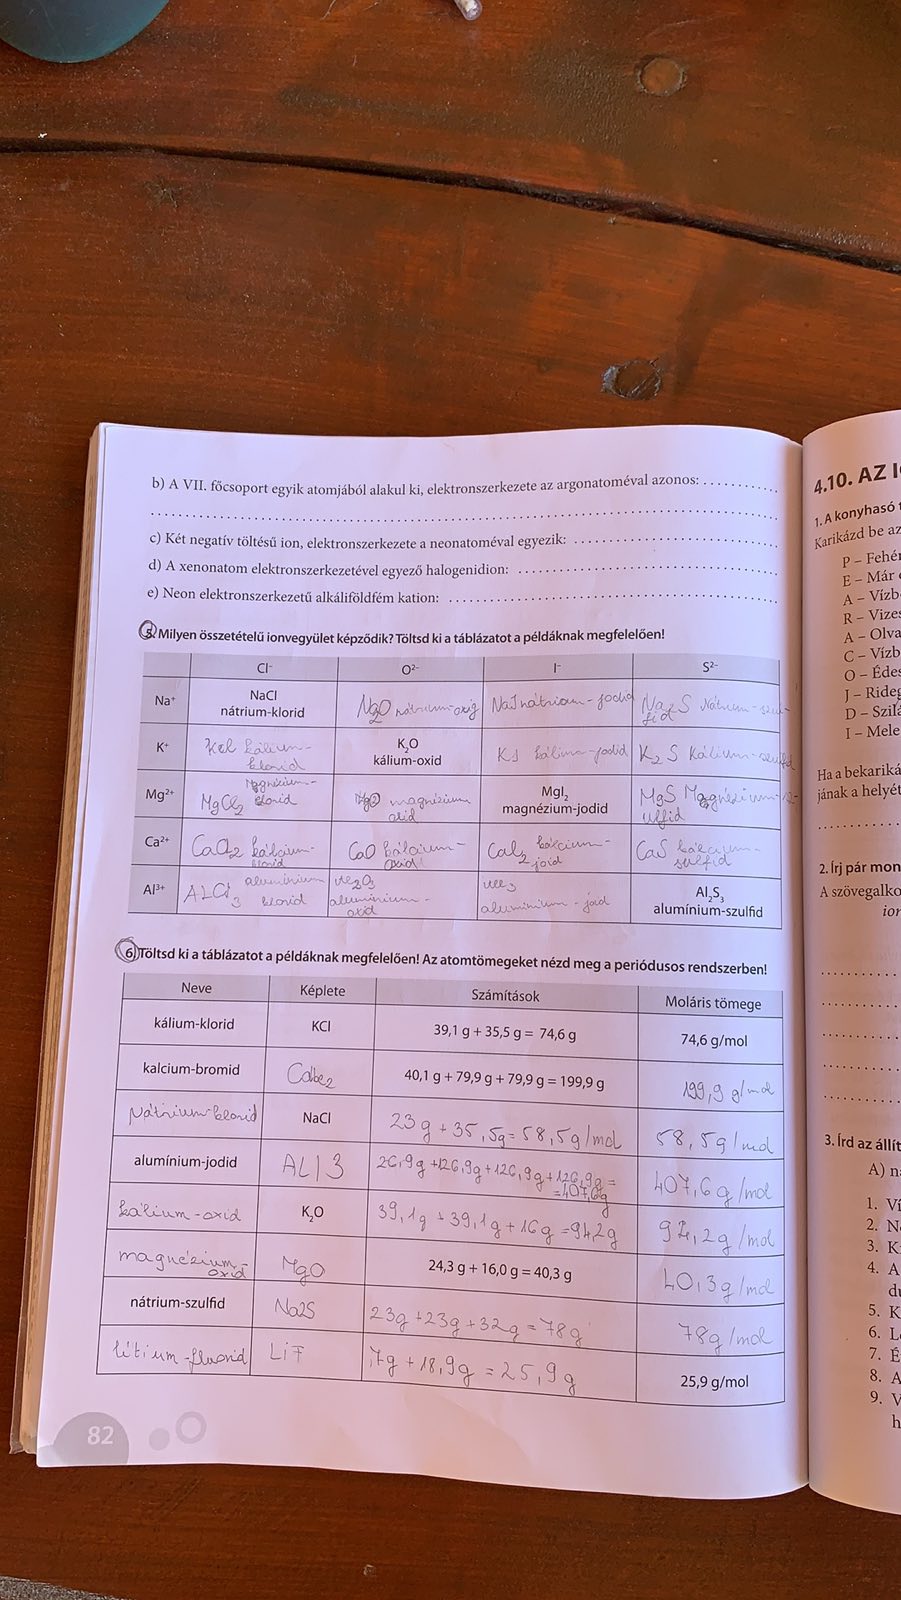 b) A VII. főcsoport egyik atomjából alakul ki, elektronszerkezete az argonatoméval azonos: ............
..........................................................................................
c) Két negatív töltésű ion, elektronszerkezete a neonatoméval egyezik: ..............................
d) A xenonatom elektronszerkezetével egyező halogenidion: ......................................
e) Neon elektronszerkezetű alkáliföldfém kation: ................................................
5. Milyen összetételű ionvegyület képződik? Töltsd ki a táblázatot a példáknak megfelelően!
Cl⁻ O²⁻ I⁻ S²⁻
Na⁺ NaCl nátrium-klorid Na2O nátrium-oxid NaI nátrium-jodid Na2S Nátrium-szulfid
K⁺ Kcl kálium-klorid K₂O kálium-oxid KI kálium-jodid K2S Kálium-szulfid
Mg²⁺ MgCl2 Magnézium-klorid MgO magnézium oxid MgI₂ magnézium-jodid MgS Magnézium-szulfid
Ca²⁺ CaCl2 kálcium-klorid CaO kálcium-oxid CaI2 kálcium-joid CaS kálcium-szulfid
Al³⁺ ALCl3 alumínium klorid Al2O3 alumínium-oxid All3 alumínium-joid Al₂S₃ alumínium-szulfid
6. Töltsd ki a táblázatot a példáknak megfelelően! Az atomtömegeket nézd meg a periódusos rendszerben!
Neve Képlete Számítások Moláris tömege
kálium-klorid KCl 39,1 g + 35,5 g = 74,6 g 74,6 g/mol
kalcium-bromid 40,1 g + 79,9 g + 79,9 g = 199,9 g 199,9 g/mol
Nátrium-klorid NaCl 23g + 35,5g = 58,5g/mol 58,5g/mol
alumínium-jodid ALI3 26,9g +126,9g+126,9g+126,9g = =407,6g 407,6g/mol
kálium-oxid K₂O 39,1g + 39,1g + 16g = 94,2g 94,2g/mol
magnézium-oxid MgO 24,3 g + 16,0 g = 40,3 g 40,3g/mol
nátrium-szulfid Na2S 23g +23g + 32g = 78g 78g/mol
lítium-fluorid LiF 7g + 18,9g = 25,9g 25,9 g/mol
82
4.10. AZ I
1. A konyhasó
Karikázd be az
P – Fehé
E – Már
A – Vízb
R – Vizes
A – Olva
C – Vízb
O – Édes
J – Rideg
D – Szilá
I – Mele
Ha a bekariká
jának a helyét
2. Írj pár mon
A szövegalko
ion
3. Írd az állít
A) n
1. Ví
2. N
3. K
4. A
d
5. K
6. L
7. É
8. A
9. V
h